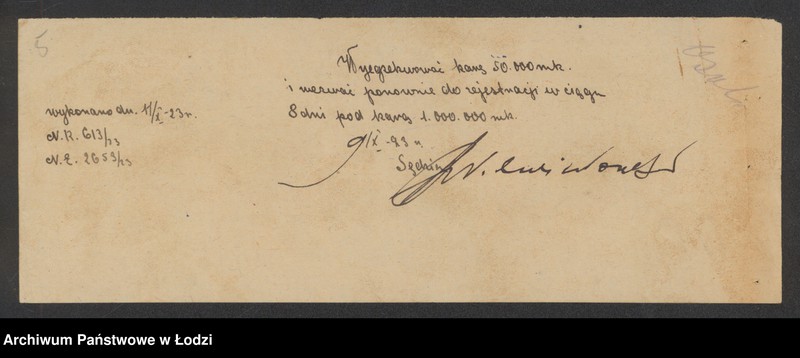 5
Wyegzekwować karę 50.000 mk.
i wezwać ponownie do rejestracji w ciągu
8 dni pod karą 1.000.000 mk.
9/X -23 r.
Sędzia
wykonano dn. 11/X -23 r.
N.R. 613/23
N.E. 2653/23
Archiwum Państwowe w Łodzi